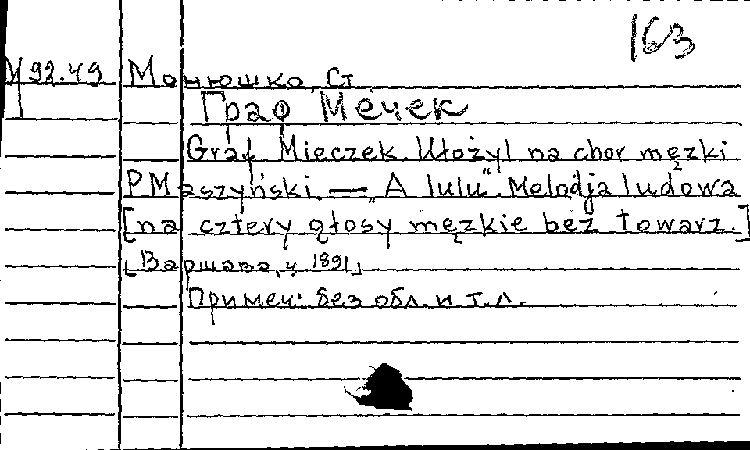 163
У 92.49 Монюшко, Ст.
Граф Мечек
Graf Mieczek. Ułożył na chor męzki
P Maszyński. — „A lulu". Melodja ludowa
[na cztery głosy męzkie bez towarz.]
[Варшава, ц. 1891]
Примеч: без обл. и т.л.